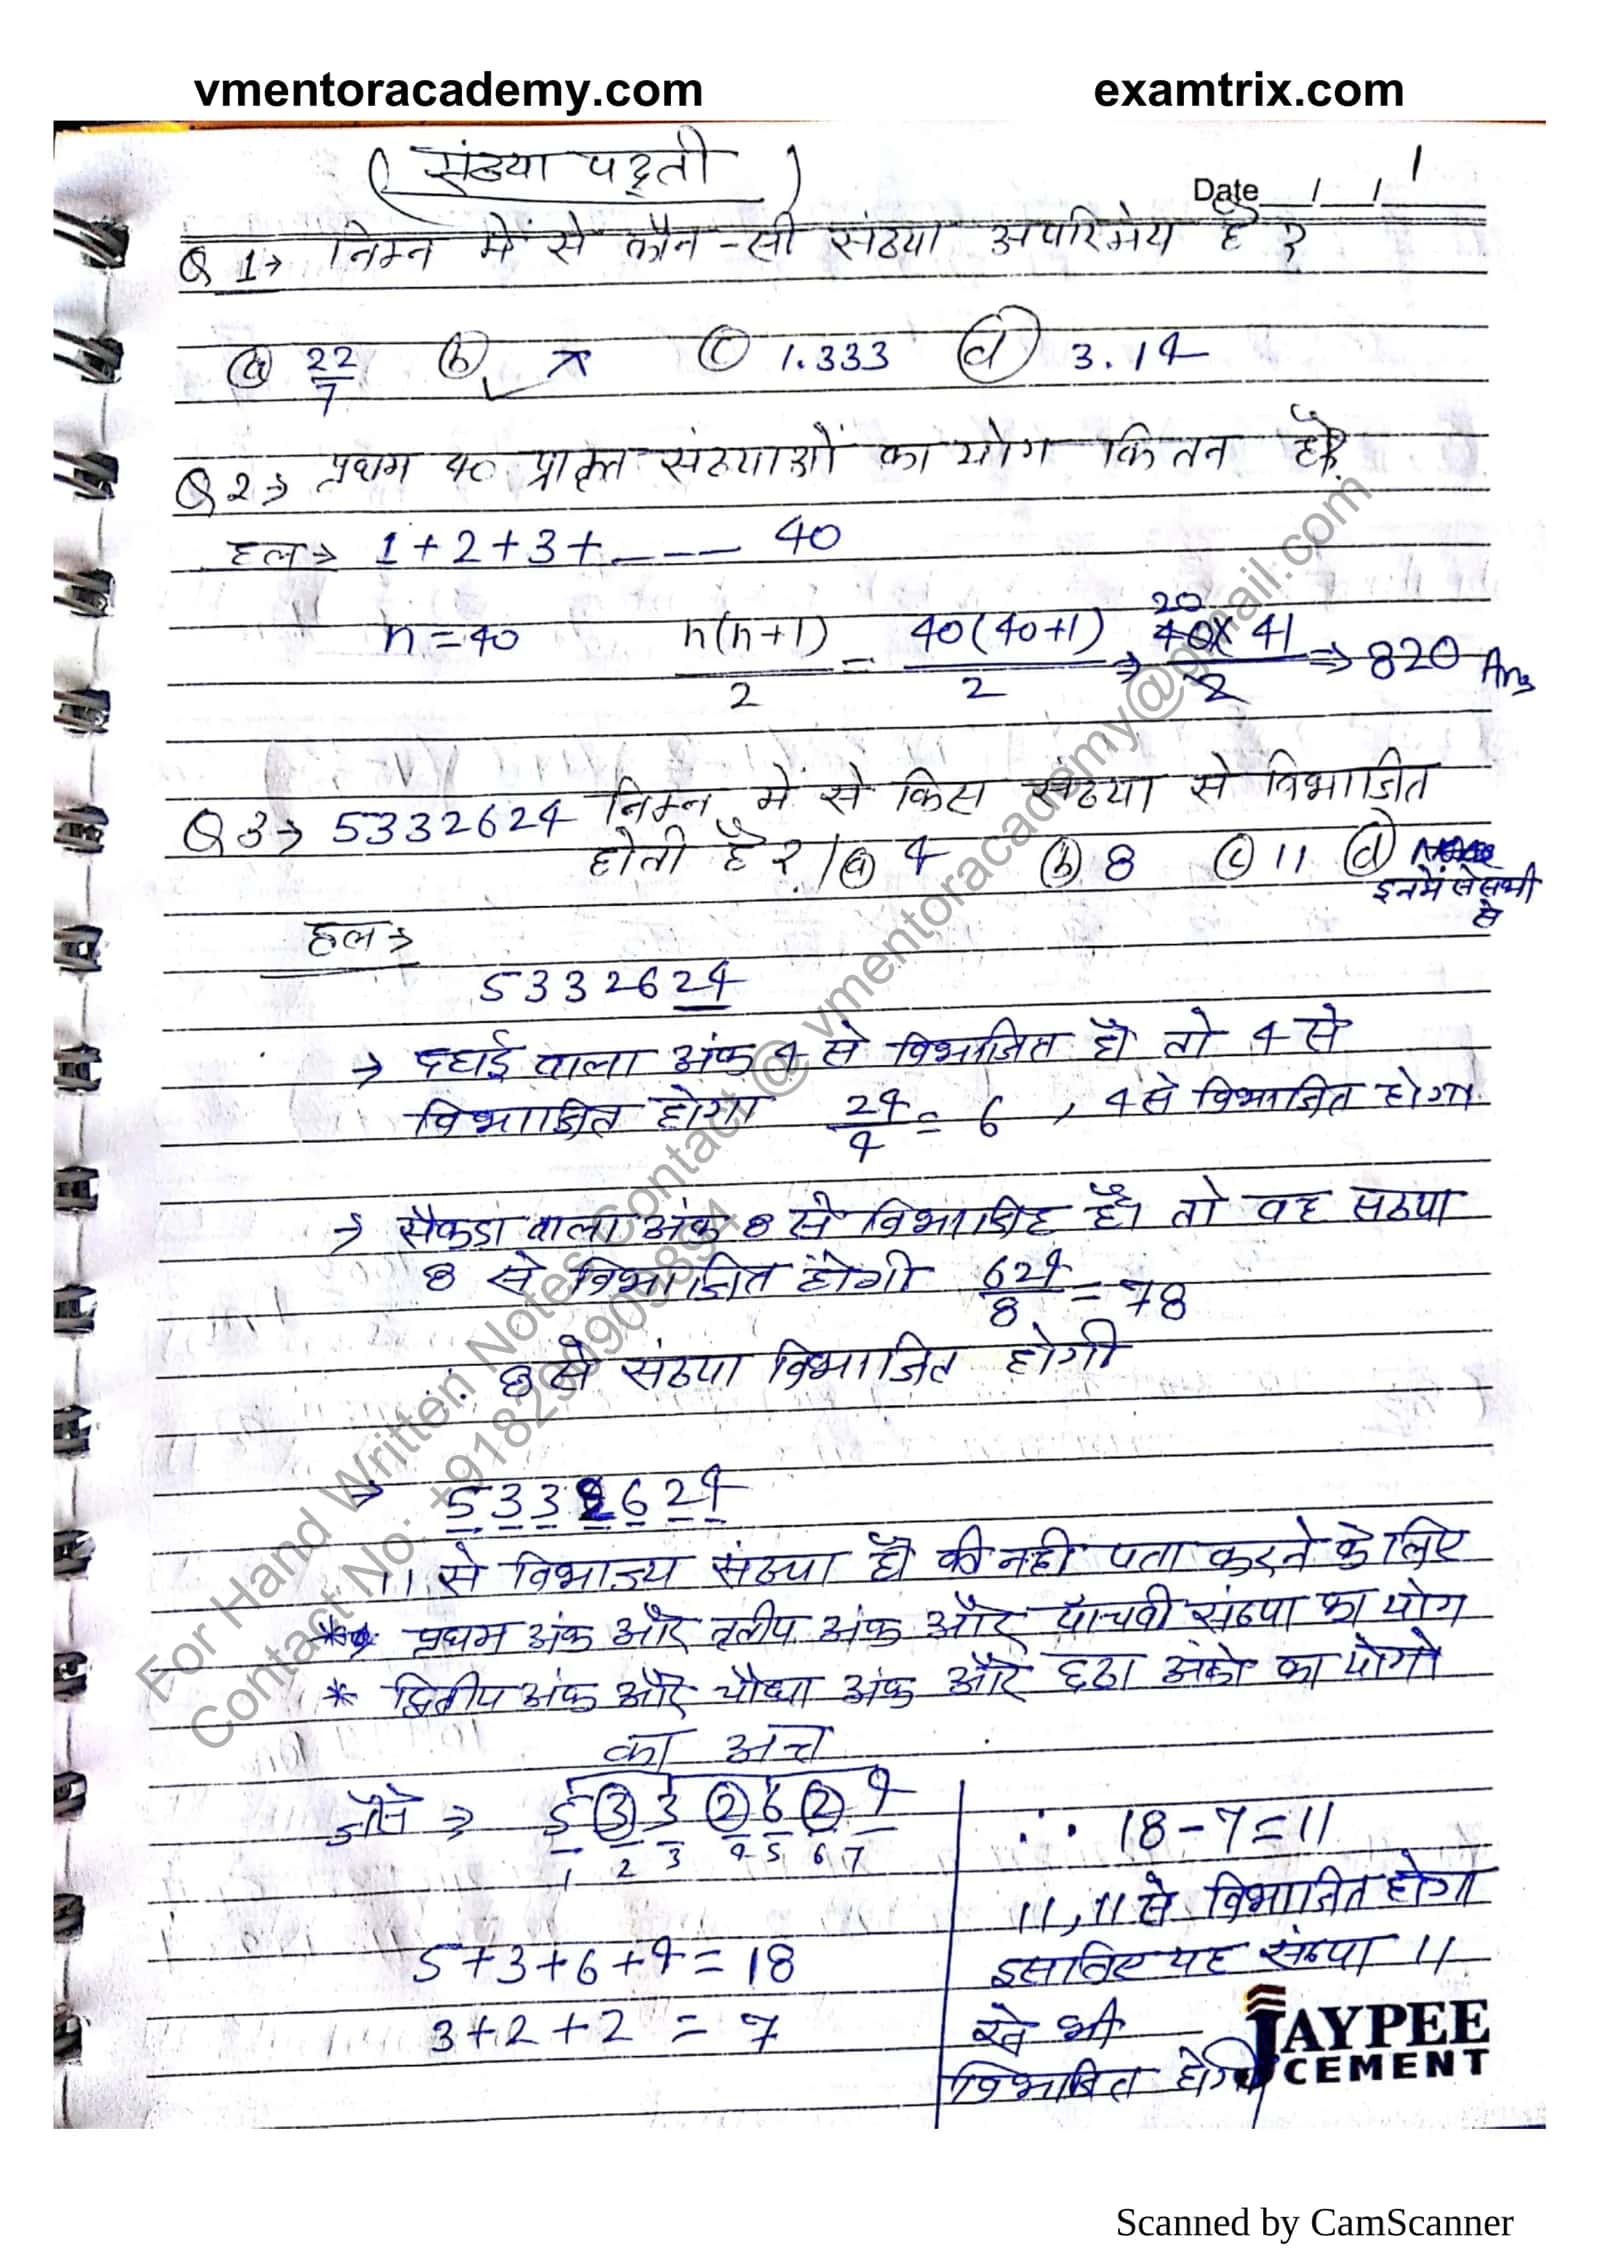 vmentoracademy.com examtrix.com
(संख्या पद्दती)
1
Date / /
Q 1→ निम्न में से कौन-सी संख्या अपरिमेय है ?
(a) 22/7 (b) π (c) 1.333 (d) 3.14
Q 2→ प्रथम 40 प्राकृत संख्याओं का योग कितन है?
हल→ 1+2+3+ _ _ _ 40
n=40 n(n+1)/2 = 40(40+1)/2 → 20 40× 41/2 ⇒ 820 Ans
Q 3→ 5332624 निम्न में से किस संख्या से विभाजित
होती है ? / (a) 4 (b) 8 (c) 11 (d)
इनमें से सभी
से
हल→
5332624
→ दहाई वाला अंक 4 से विभाजित है तो 4 से
विभाजित होगा 24/4 = 6 , 4 से विभाजित होगा
→ सैकडा वाला अंक 8 से विभाजित है। तो वह सख्या
8 से विभाजित होगी 624/8 = 78
∴ 8 से संख्या विभाजित होगी
→ 5332624
11 से विभाज्य संख्या है की नही पता करने के लिए
* प्रथम अंक और तृतीय अंक और पाँचवी संख्या का योग
* द्वितीय अंक और चौथा अंक और छठा अंको का योगो
का अन्त
जैसे ⇒ 5 3 3 2 6 2 4
1 2 3 4 5 6 7
5+3+6+4 = 18
3+2+2 = 7
∴ 18-7=11
11, 11 से विभाजित होगा
इसलिए यह संख्या 11
से भी
विभाजित होगी
JAYPEE
CEMENT
For Hand Written Notes Contact @ vmentoracademy@gmail.com
Contact No. +918290909894
Scanned by CamScanner